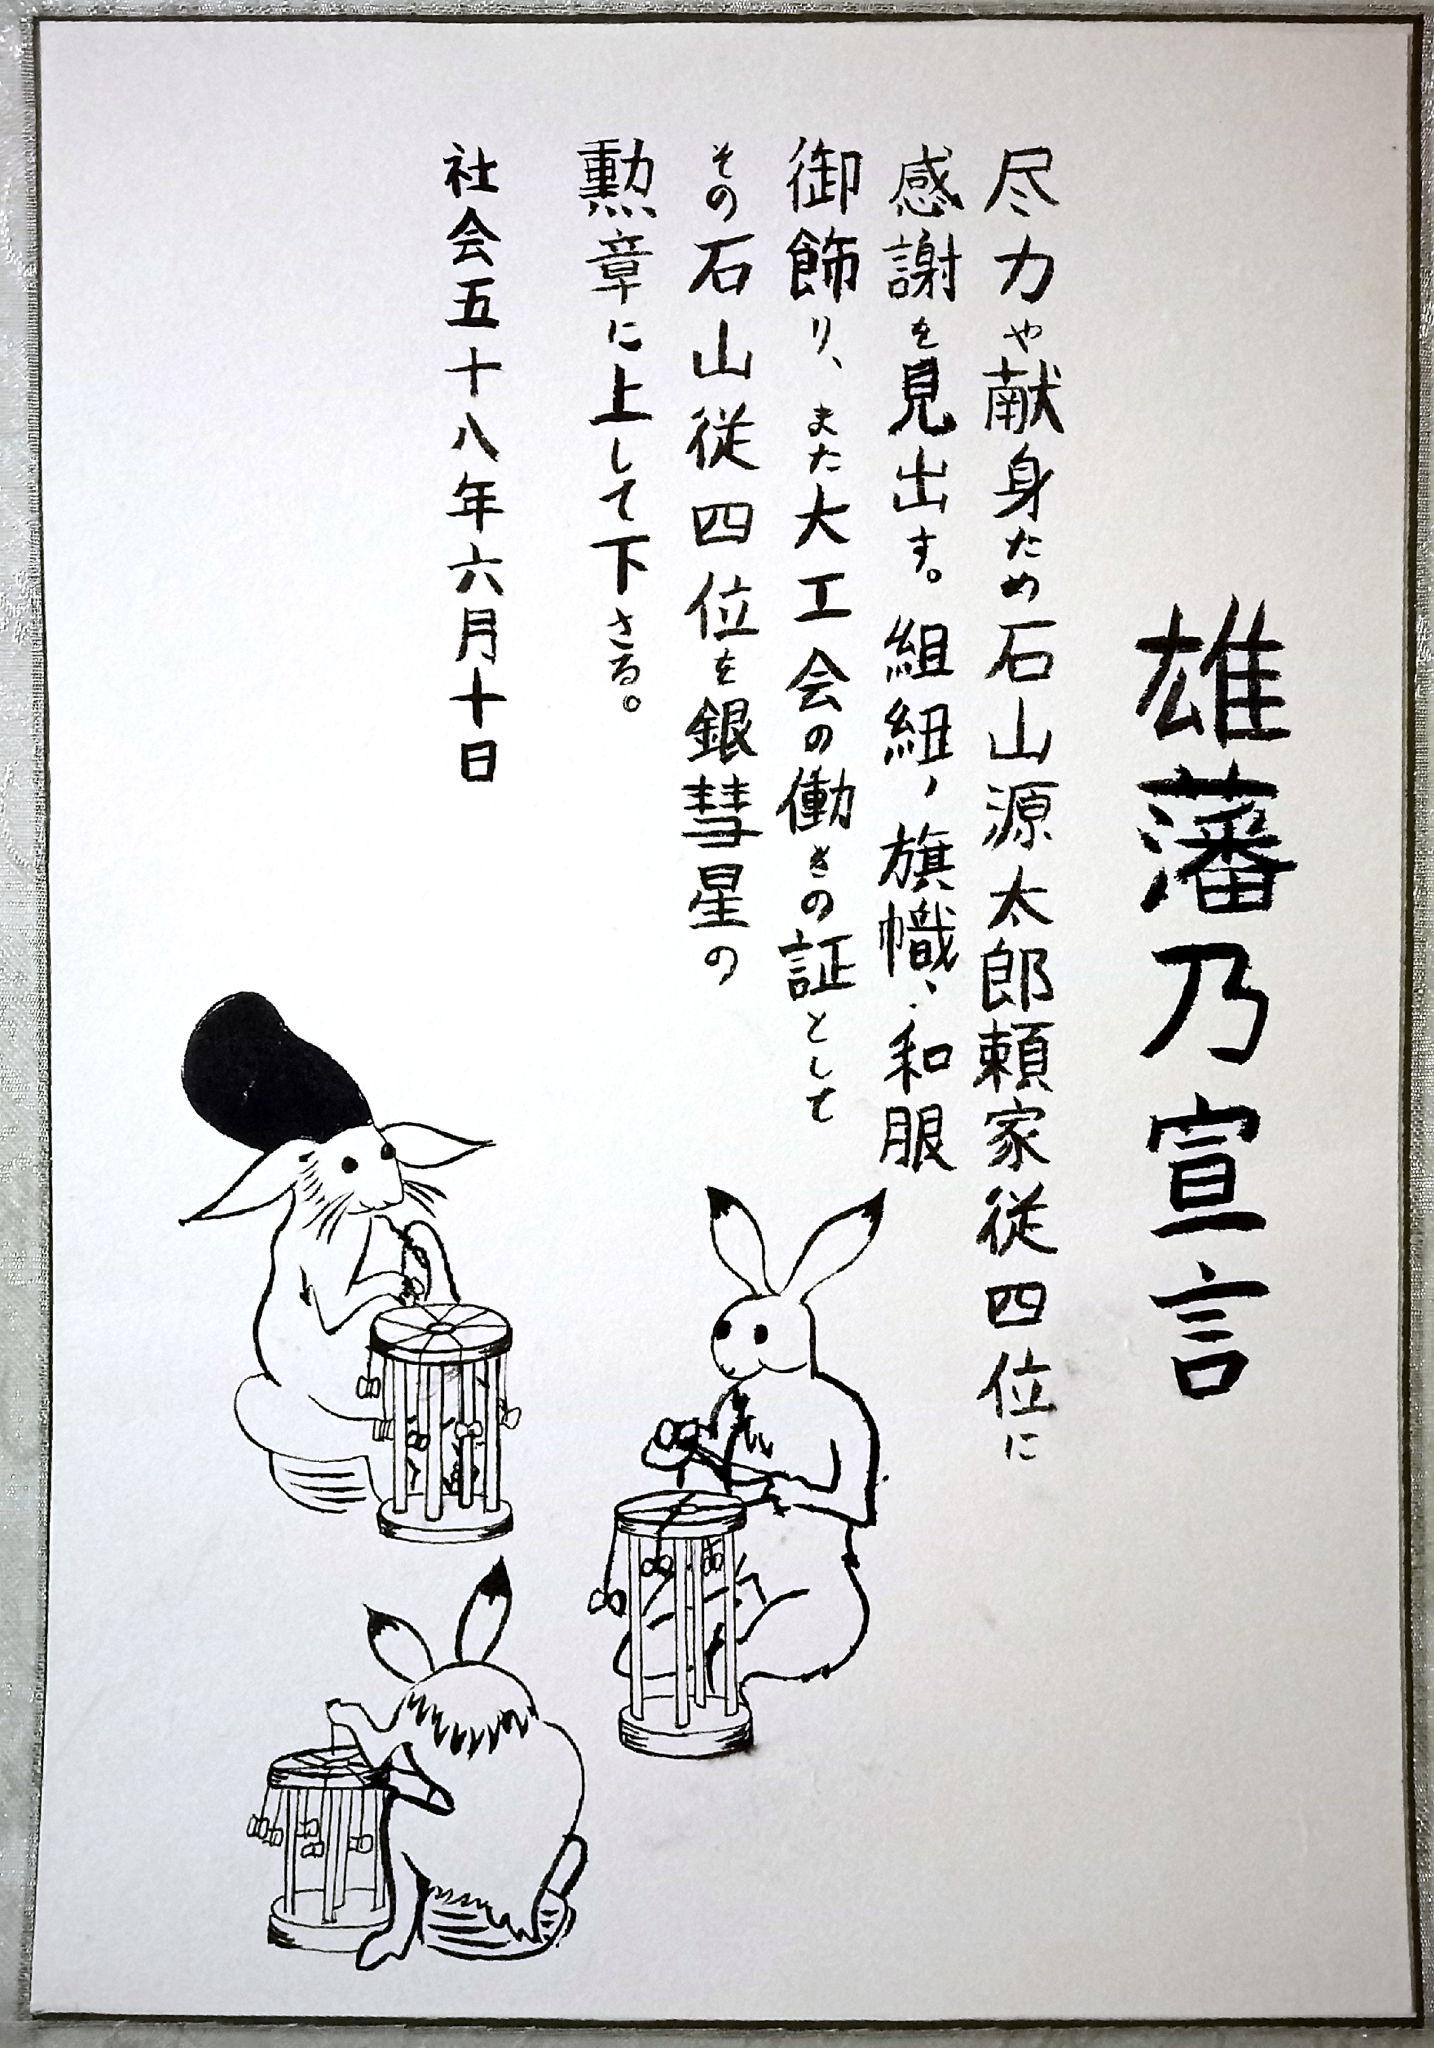 雄藩乃宣言
尽力や献身ため石山源太郎頼家従四位に
感謝を見出す。組紐、旗幟、和服
御飾り、また大工会の働きの証として
その石山従四位を銀彗星の
勲章に上して下さる。
社会五十八年六月十日